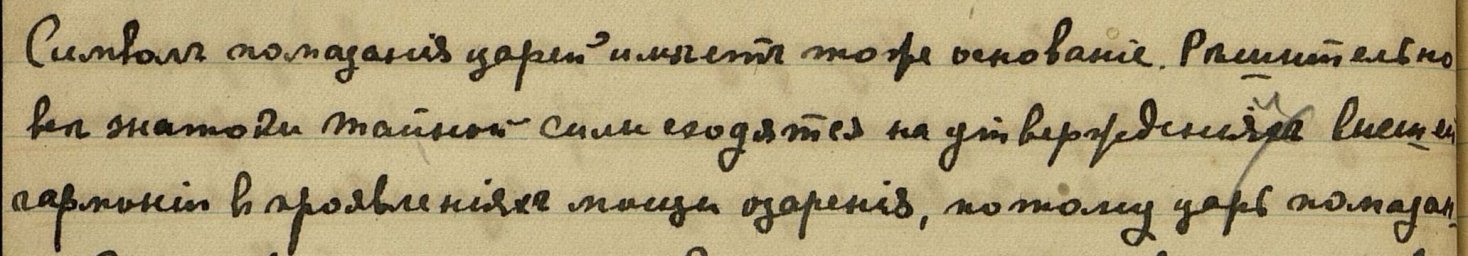 Символъ помазанія царей имѣетъ тоже основаніе. Рѣшительно
всѣ знатоки тайной силы сходятся на утвержденіяхъ внешней
гармоніи в проявленіяхъ мощи озаренія, потому царь помазан